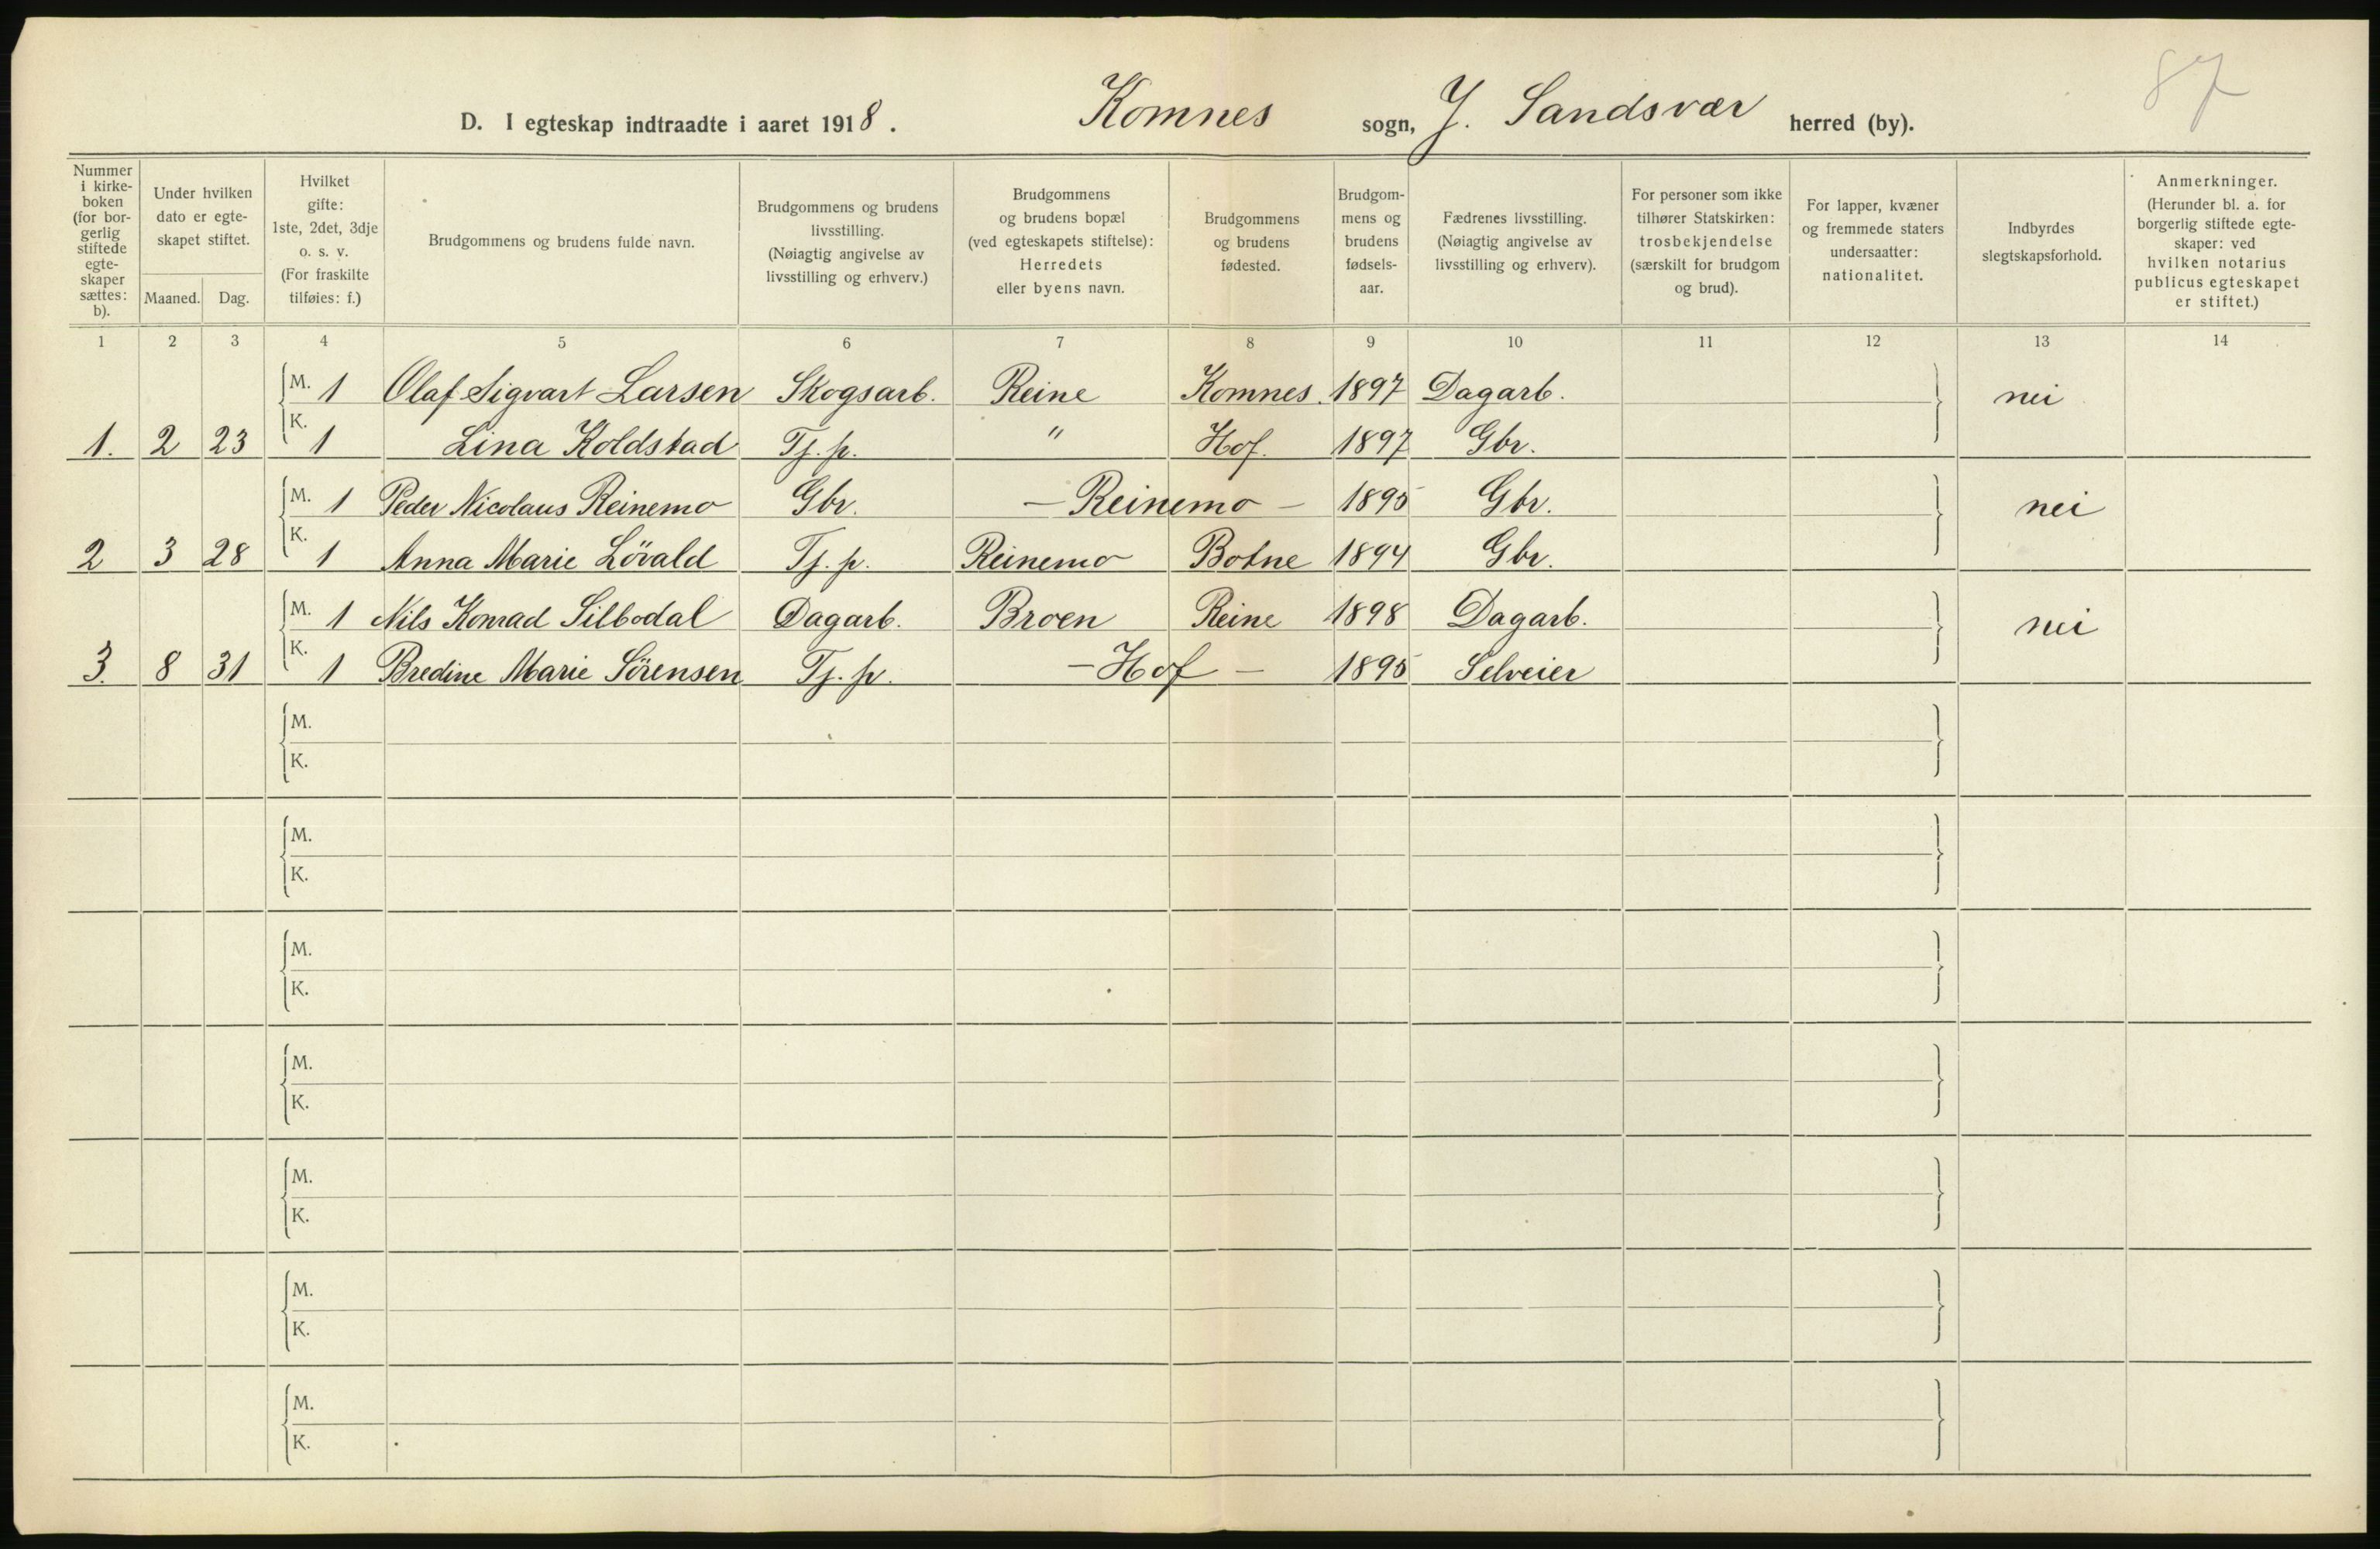 87
D. I egteskap indtraadte i aaret 1918. Komnes sogn, Y. Sandsvær herred (by).
Nummer i kirke-boken (for bor-gerlig stiftede egte-skaper sættes: b).
Under hvilken dato er egte-skapet stiftet.
Maaned. Dag.
Hvilket gifte: 1ste, 2det, 3dje o. s. v. (For fraskilte tilføies: f.)
Brudgommens og brudens fulde navn.
Brudgommens og brudens livsstilling. (Nøiagtig angivelse av livsstilling og erhverv.)
Brudgommens og brudens bopæl (ved egteskapets stiftelse): Herredets eller byens navn.
Brudgommens og brudens fødested.
Brudgom-mens og brudens fødsels-aar.
Fædrenes livsstilling. (Nøiagtig angivelse av livsstilling og erhverv).
For personer som ikke tilhører Statskirken: trosbekjendelse (særskilt for brudgom og brud).
For lapper, kvæner og fremmede staters undersaatter: nationalitet.
Indbyrdes slegtskapsforhold.
Anmerkninger. (Herunder bl. a. for borgerlig stiftede egte-skaper: ved hvilken notarius publicus egteskapet er stiftet.)
1 2 3 4 5 6 7 8 9 10 11 12 13 14
M. 1 Olaf Sigvart Larsen Skogsarb. Reine Komnes. 1897 Dagarb. nei
1. 2 23 K. 1 Lina Koldstad Tj. p. " Hof. 1897 Gbr.
M. 1 Peder Nicolaus Reinemo Gbr. — Reinemo — 1895 Gbr. nei
2 3 28 K. 1 Anna Marie Lövald Tj. p. Reinemo Botne 1894 Gbr.
M. 1 Nils Konrad Silbodal Dagarb. Broen Reine 1898 Dagarb. nei
3. 8 31 K. 1 Bredine Marie Sörensen Tj. p. — Hof — 1895 Selveier
M.
K.
M.
K.
M.
K.
M.
K.
M.
K.
M.
K.
M.
K.